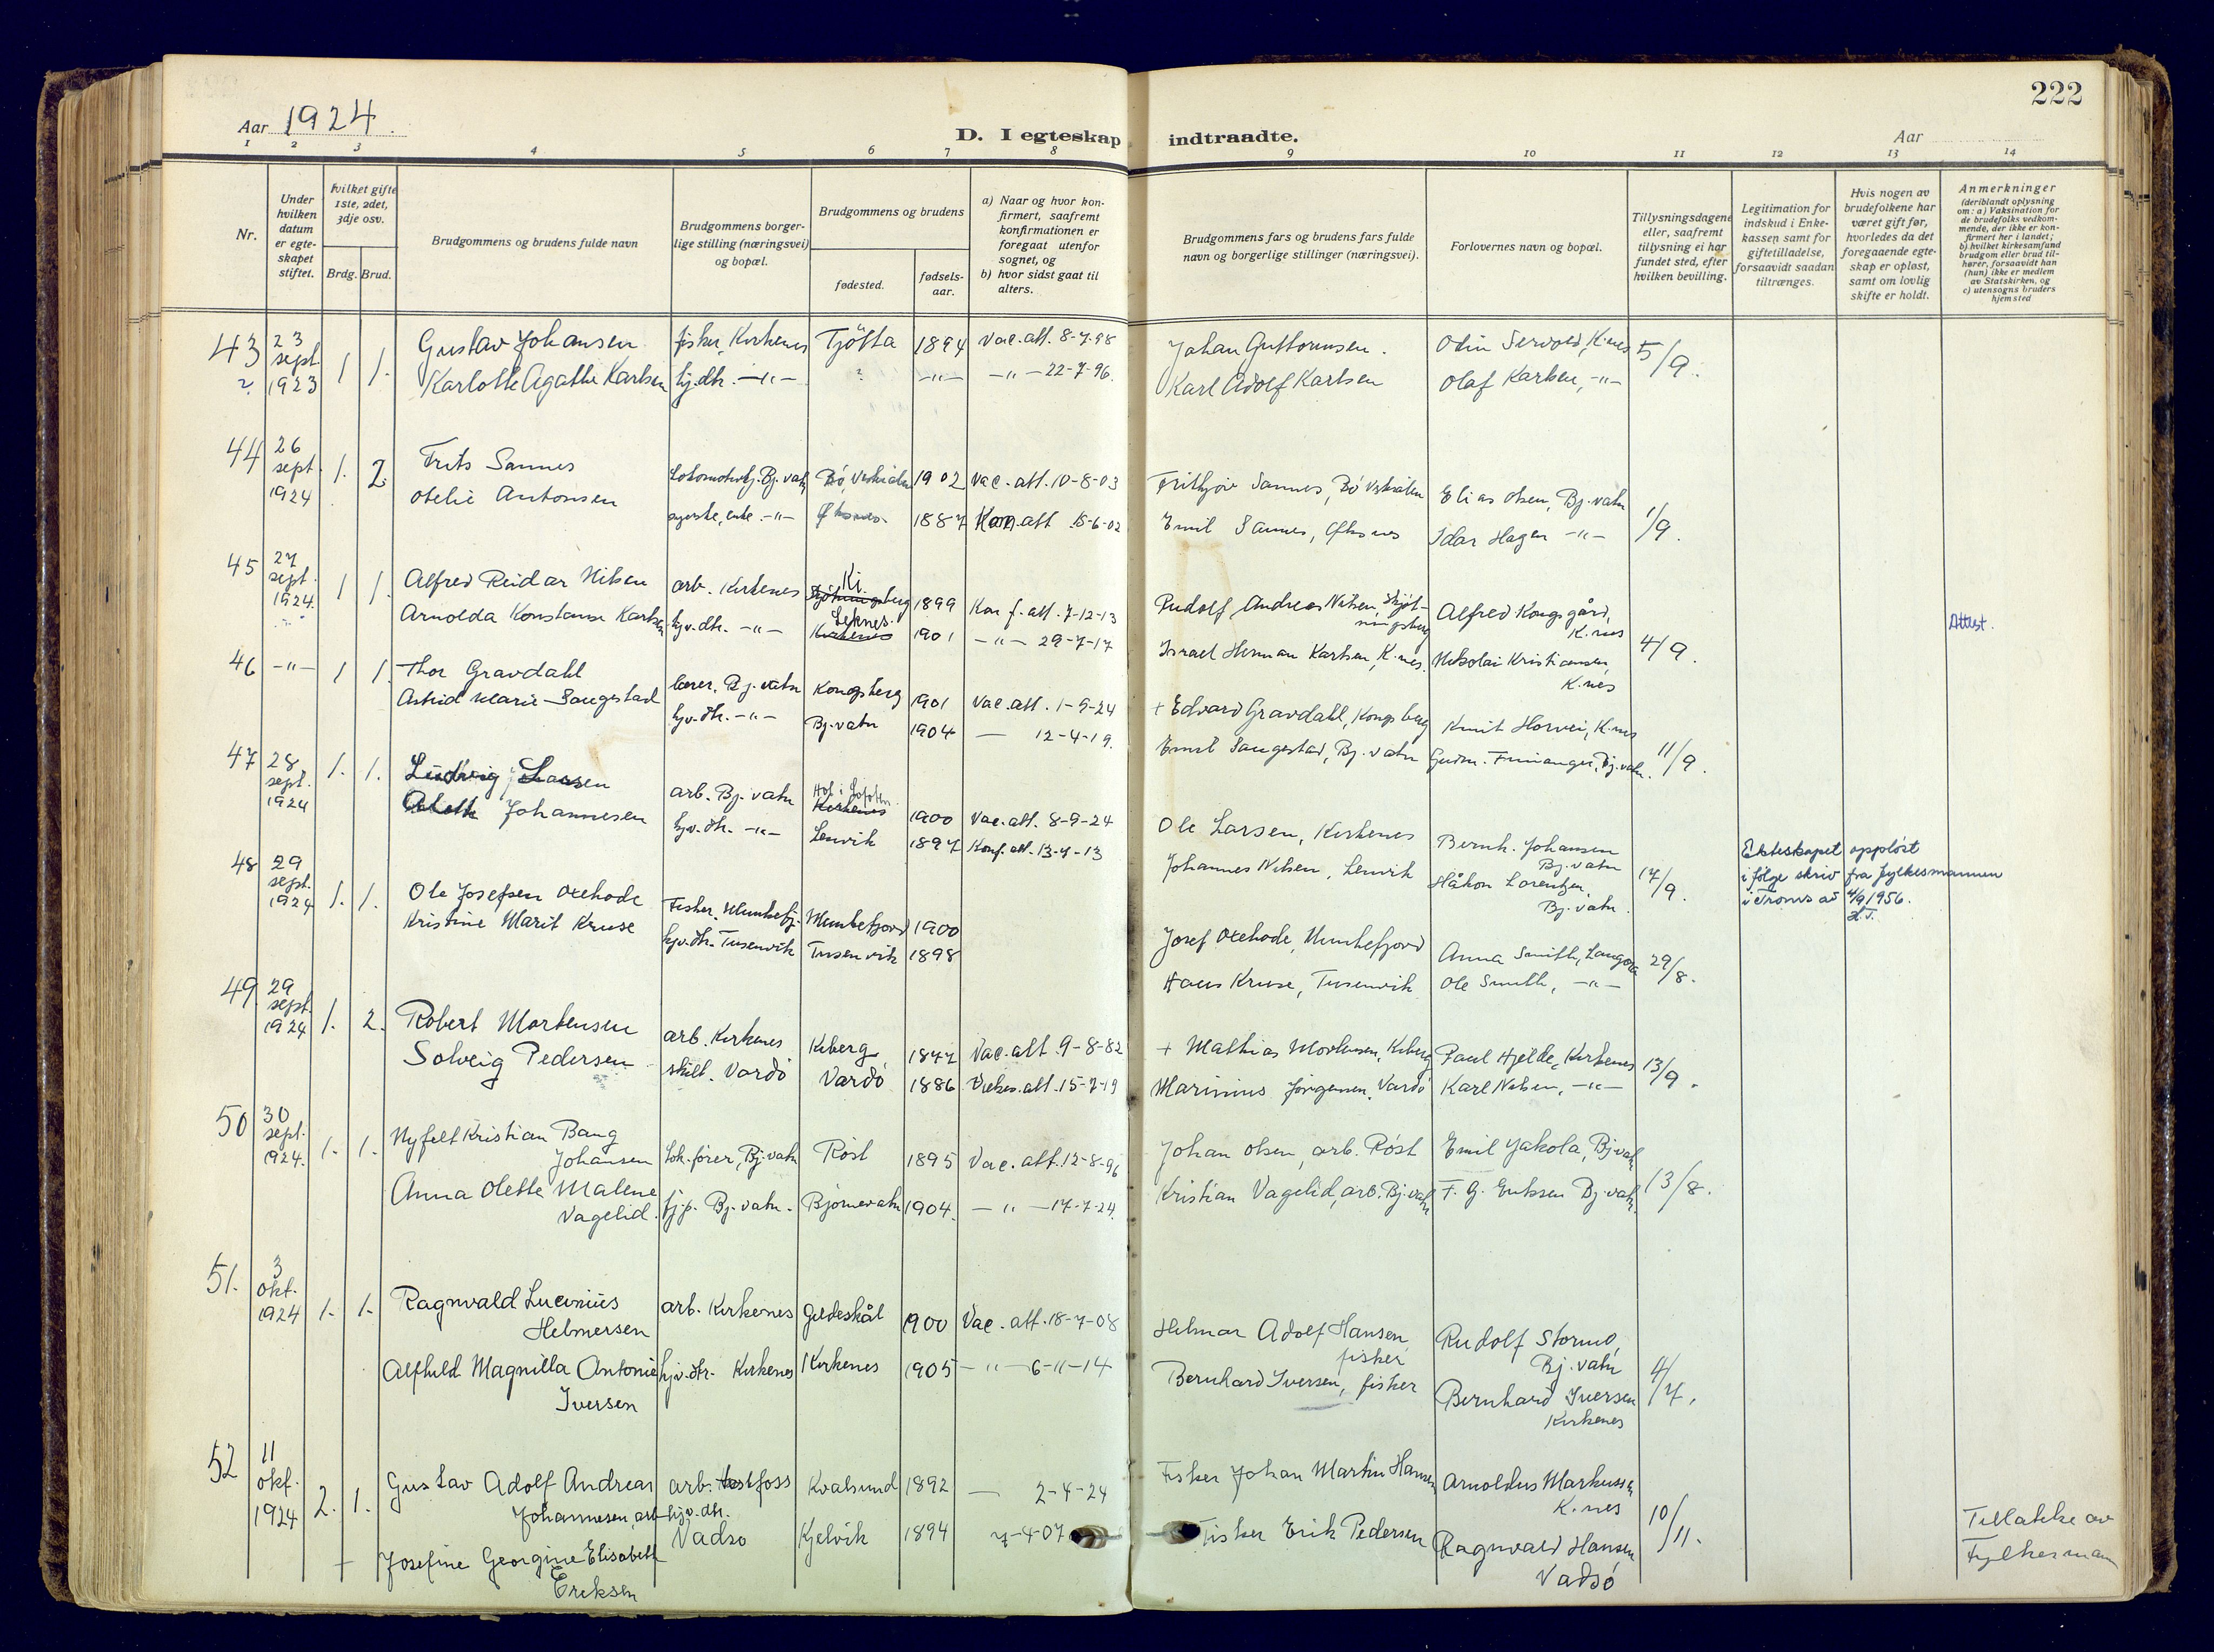 222
Aar 1924.
D. I egteskap indtraadte.
Aar
1 2 3 4 5 6 7 8 9 10 11 12 13 14
Nr.
Under hvilken datum er egte-skapet stiftet.
hvilket gifte 1ste, 2det, 3dje osv.
Brdg. Brud.
Brudgommens og brudens fulde navn
Brudgommens borger-lige stilling (næringsvei) og bopæl.
Brudgommens og brudens
fødested.
fødsels-aar.
a) Naar og hvor kon-firmert, saafremt konfirmationen er foregaat utenfor sognet, og
b) hvor sidst gaat til alters.
Brudgommens fars og brudens fars fulde navn og borgerlige stillinger (næringsvei).
Forlovernes navn og bopæl.
Tillysningsdagene eller, saafremt tillysning ei har fundet sted, efter hvilken bevilling.
Legitimation for indskud i Enke-kassen samt for giftetilladelse, forsaavidt saadan tiltrænges.
Hvis nogen av brudefolkene har været gift før, hvorledes da det foregaaende egte-skap er opløst, samt om lovlig skifte er holdt.
Anmerkninger (deriblandt oplysning om: a) Vaksination for de brudefolks vedkom-mende, der ikke er kon-firmert her i landet; b) hvilket kirkesamfund brudgom eller brud til-hører, forsaavidt han (hun) ikke er medlem av Statskirken, og c) utensogns bruders hjemsted
43 23 sept. 1923 1 1. Gustav Johansen fisker, Kirkenes Tjötta 1894 Vac. att. 8-7-98 Johan Guttormsen. Odin Servold, K.nes 5/9.
? Karlotte Agathe Karlsen hj.dtr. -"- ? -"- -"- 22-7-96. Karl Adolf Karlsen Olaf Karlsen, -"-
44 26 sept. 1924 1. 2. Frits Sannes Bj. vatn Bö, 1902 Vac. att. 10-8-03 Frithjov Sannes, Bö Elias Olsen, Bj. vatn 1/9.
Otelie Antonsen enke -"- 1887 Kon. att 15-6-02 Emil Sannes, Idar Hagen -"-
45 27 sept. 1924. 1 1. Alfred Reidar Nilsen arb. Kirkenes Ki. 1899 Kon f. att. 7-12-13 Rudolf Andreas Nilsen, Skjöt-ningsberg Alfred Kongsgård, K.nes 4/9.
Arnolda Konstanse Karlsen hjv. dtr. -"- Leknes. Kirkenes 1901 -"- 29-7-17 Israel Herman Karlsen, K.nes. Nikolai Kristiansen, K.nes
Attest.
46 -"- 1 1. Thor Gravdahl lærer, Bj. vatn Kongsberg 1901 Vac. att. 1-9-24 + Edvard Gravdahl, Kongsberg Knut Horvei, K.nes 11/9.
Astrid Marie Saugestad hjv. dtr. -"- Bj. vatn 1904 — 12-4-19. Emil Saugestad, Bj. vatn Gudm. Finnanger, Bj. vatn.
47 28 sept. 1924 1. 1. Ludvig Larsen arb. Bj. vatn Hol i Lofoten. Kirkenes 1900 Vac. att. 8-9-24 Ole Larsen, Kirkenes Bernh. Johansen Bj. vatn 17/9.
Johannesen hjv. dtr. -"- Lenvik 1897 Konf. att. 13-7-13 Johannes Nilsen, Lenvik Håkon Lorentzen, Bj. vatn.
Ekteskapet oppløst
i følge skriv fra fylkesmannen
i Troms av 4/9 1956.
48 29 sept. 1924 1. 1. Ole Josefsen Oxehode Fisker, Munkefj. Munkefjord 1900 Josef Oxehode, Munkefjord Anna Smith, Langøra 29/8.
Kristine Marit Kruse hjv. dtr. Tusenvik Tusenvik 1898 Hans Kruse, Tusenvik Ole Smith, -"-
49. 29 sept. 1924 1. 2. Robert Mortensen arb. Kirkenes Kiberg 1877 Vac. att. 9-8-82 + Mathias Mortensen, Kiberg Paul Hjelde, Kirkenes 13/9.
Solveig Pedersen skilt. Vardö Vardö 1886 att. 15-7-19 Marinius Jörgensen, Vardö Karl Nilsen, -"-
50 30 sept. 1924. 1. 1. Nyfelt Kristian Bang Johansen Lok. förer, Bj. vatn Röst 1895 Vac. att. 12-8-96 Johan Olsen, arb. Röst Emil Jakola, Bj. vatn 13/8.
Anna Olette Malene Vagelid. Bj. vatn. Björnevatn 1904. -"- 17-7-24. Kristian Vagelid, arb. Bj. vatn F. G. Eriksen Bj. vatn.
51. 3 okt. 1924 1. 1. Ragnvald Lucinius Helmersen arb. Kirkenes Gildeskål 1900 Vac. att. 18-7-08 Helmar Adolf Hansen, fisker Rudolf Stormo, Bj. vatn 4/7.
Alfhild Magnilla Antonie Iversen hjv. dtr. Kirkenes Kirkenes 1905 -"- 6-11-14 Bernhard Iversen, fisker Bernhard Iversen Kirkenes
52 11 okt. 1924 2. 1. Gustav Adolf Andreas Johannesen, arb arb. Kvalsund 1892 — 2-4-24 Fisker Johan Martin Hansen Arnoldus Markussen K.nes 10/11.
+ Josefine Georgine Elisabeth Eriksen hjv. dtr. Vadsø Kjelvik 1894 7-4-07 Fisker Erik Pedersen Ragnvald Hansen Vadsö
Tillatelse av
Fylkesmann